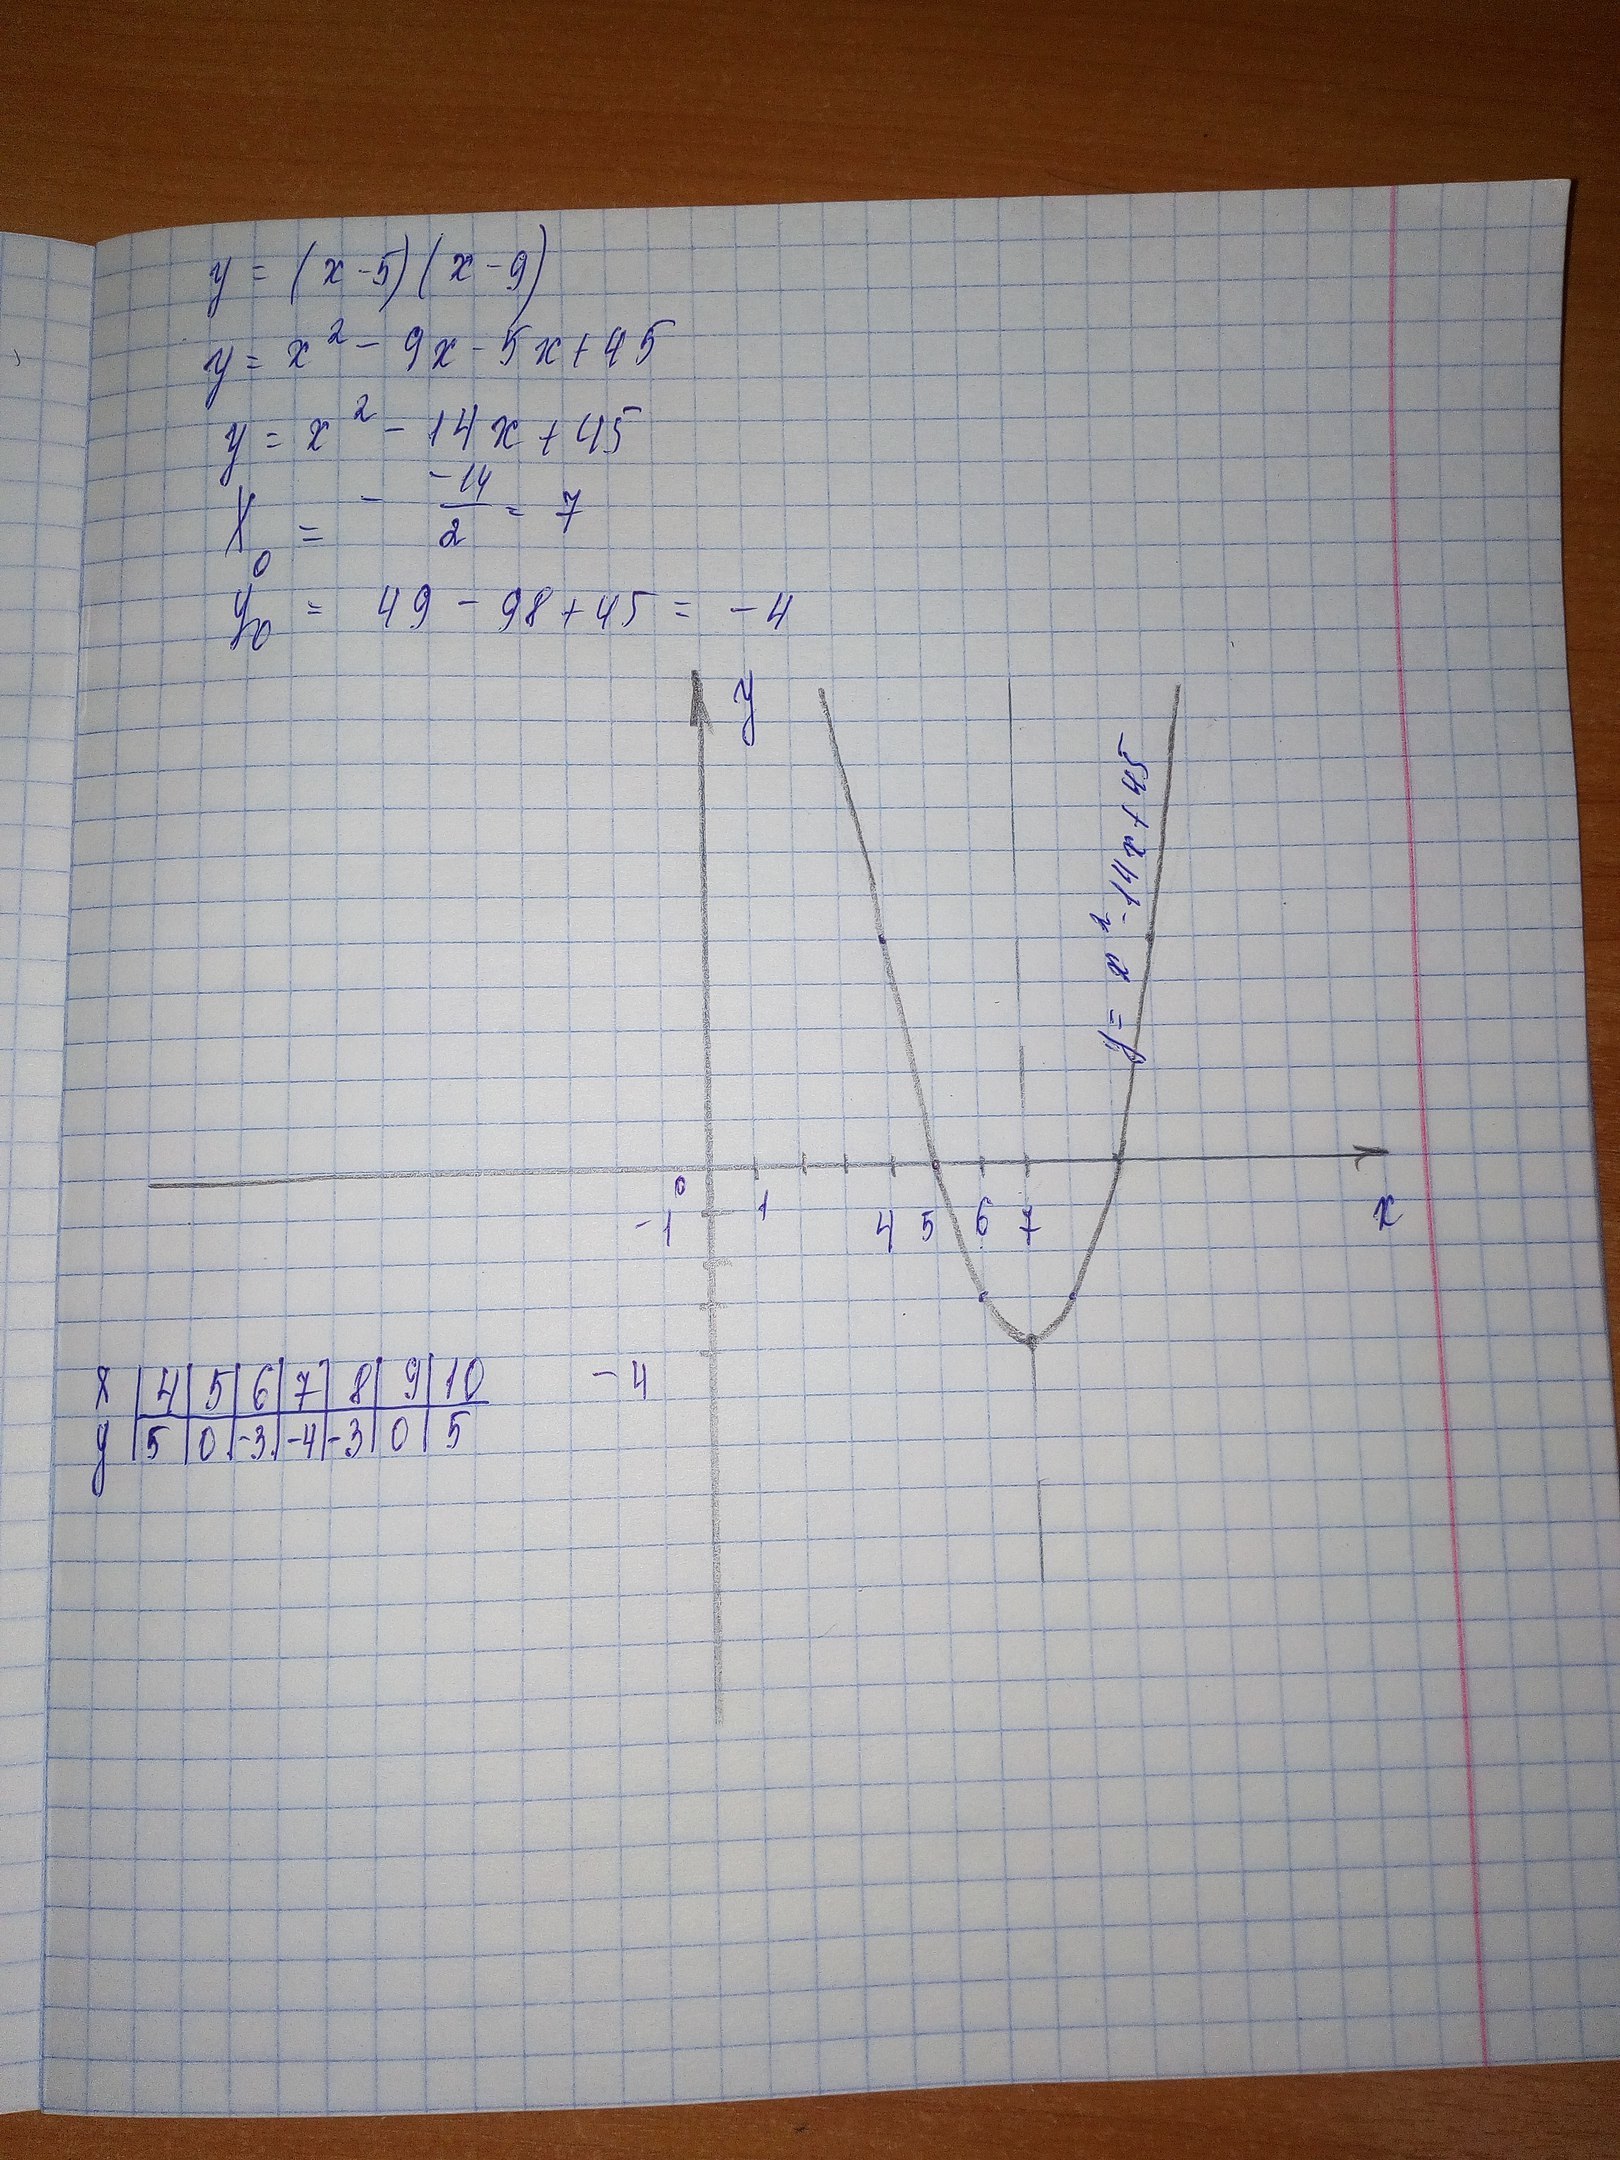 y = (x-5)(x-9)
y = x² - 9x - 5x + 45
y = x² - 14x + 45
x₀ = - -14/2 = 7
y₀ = 49 - 98 + 45 = -4
y
y = x² - 14x + 45
0
-1
1
4 5 6 7
x
-4
x | 4 | 5 | 6 | 7 | 8 | 9 | 10
y | 5 | 0 | -3 | -4 | -3 | 0 | 5